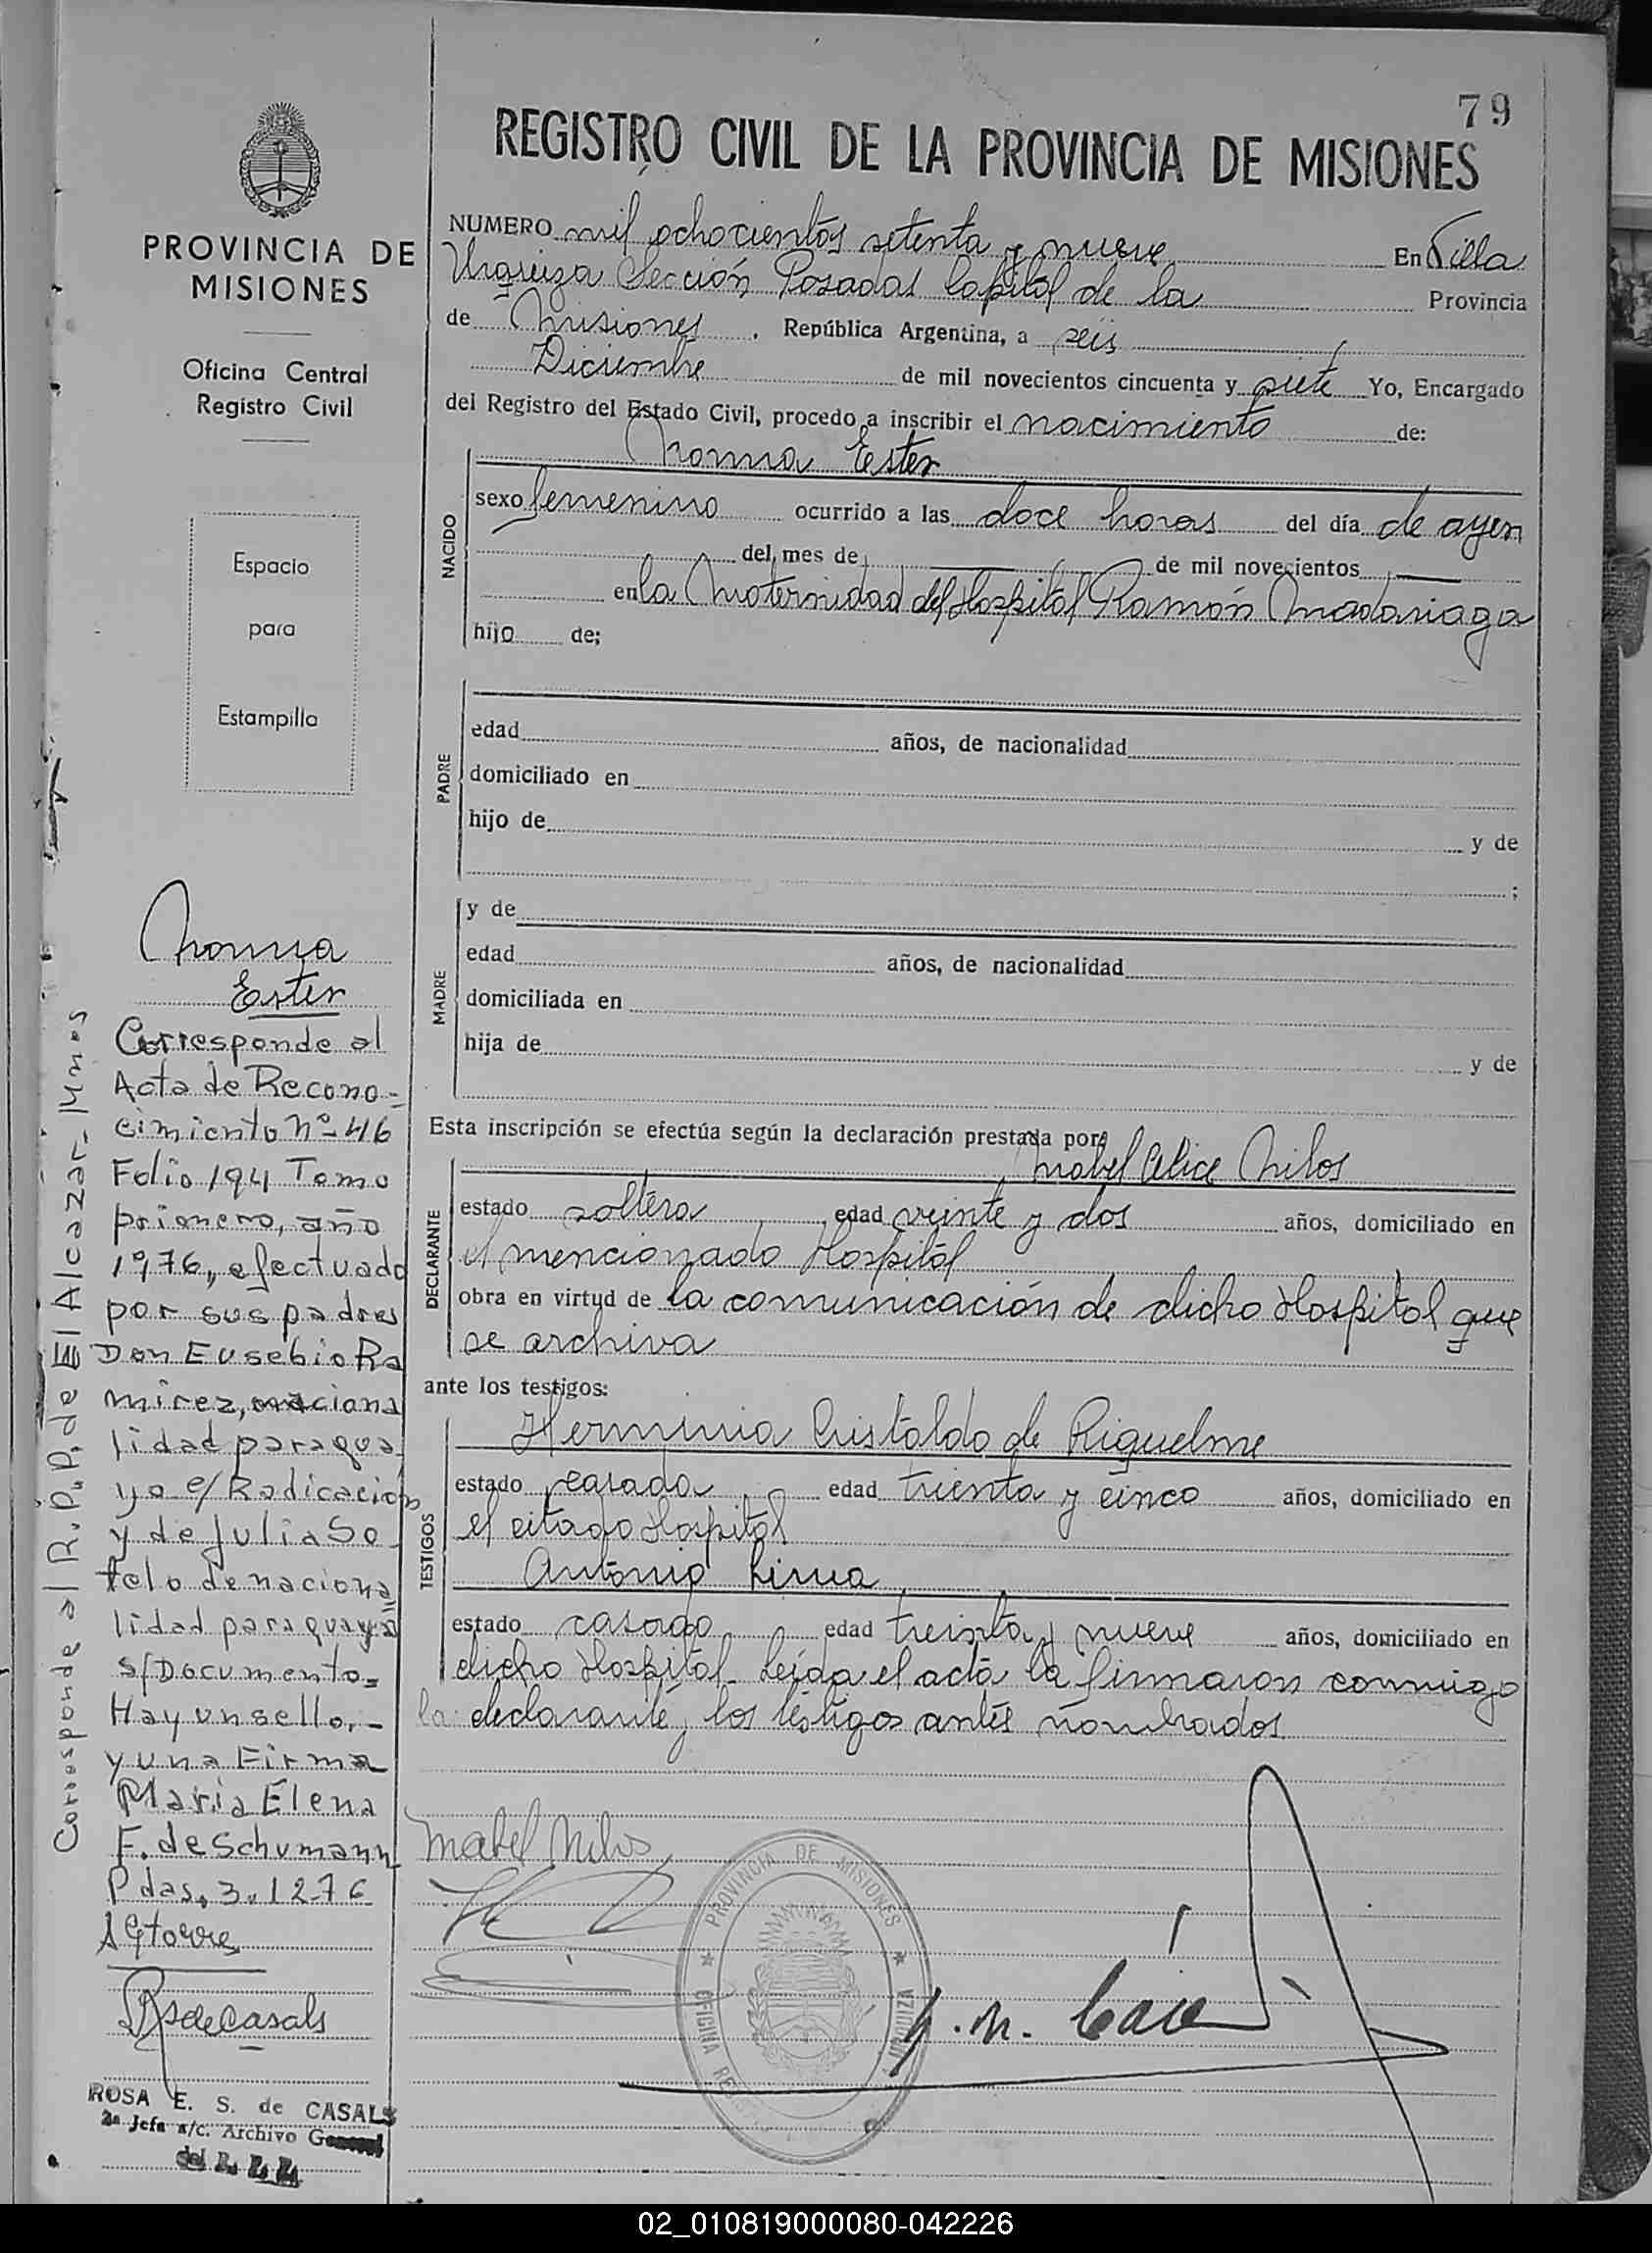 79
REGISTRO CIVIL DE LA PROVINCIA DE MISIONES
PROVINCIA DE
MISIONES
Oficina Central
Registro Civil
Espacio
para
Estampilla
NUMERO mil ochocientos setenta y nueve En Villa
Urquiza Sección Posadas Capital de la Provincia
de Misiones, República Argentina, a seis
Diciembre de mil novecientos cincuenta y siete Yo, Encargado
del Registro del Estado Civil, procedo a inscribir el nacimiento de:
NACIDO
Norma Ester
sexo femenino ocurrido a las doce horas del día de ayer
del mes de de mil novecientos
en la Maternidad del Hospital Ramón Madariaga
hijo de;
PADRE
edad años, de nacionalidad
domiciliado en
hijo de y de
;
MADRE
y de
edad años, de nacionalidad
domiciliada en
hija de y de
Esta inscripción se efectúa según la declaración prestada por
DECLARANTE
Mabel Alice Milos
estado soltera edad veinte y dos años, domiciliado en
el mencionado Hospital
obra en virtud de la comunicación de dicho Hospital que
se archiva
ante los testigos:
TESTIGOS
Herminia Cristaldo de Riquelme
estado casada edad treinta y cinco años, domiciliado en
el citado Hospital
Antonio Lima
estado casado edad treinta y nueve años, domiciliado en
dicho Hospital. Leída el acta la firmaron conmigo
la declarante y los testigos antes nombrados.
Mabel Milos
PROVINCIA DE MISIONES
OFICINA
URQUIZA
Norma
Ester
Corresponde al
Acta de Recono-
cimiento Nº 46
Folio 194 Tomo
primero, año
1976, efectuado
por sus padres
Don Eusebio Ra
mirez, naciona
lidad paragua
ya c/ Radicación
y de Julia So
telo de naciona
lidad paraguaya
s/Documento=
Hay un sello,-
y una Firma
María Elena
F. de Schumann
Pdas, 3.12-76
Corresponde al R.P.P. de El Alcazar - Mnes
RS de Casals
ROSA E. S. de CASALS
2ª Jefa a/c. Archivo General
del R. P. P.
02_010819000080-042226